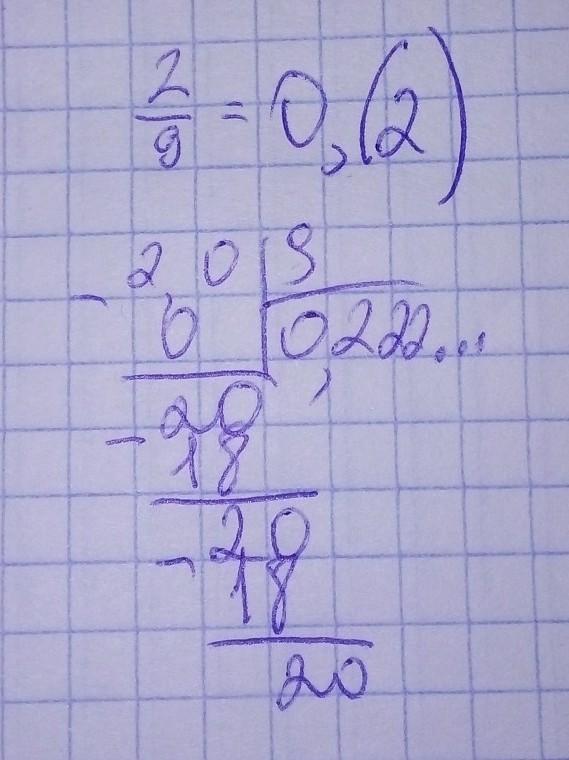 2/9 = 0,(2)
- 2,0 | 9
0 | 0,222...
- 20
18
- 20
18
20